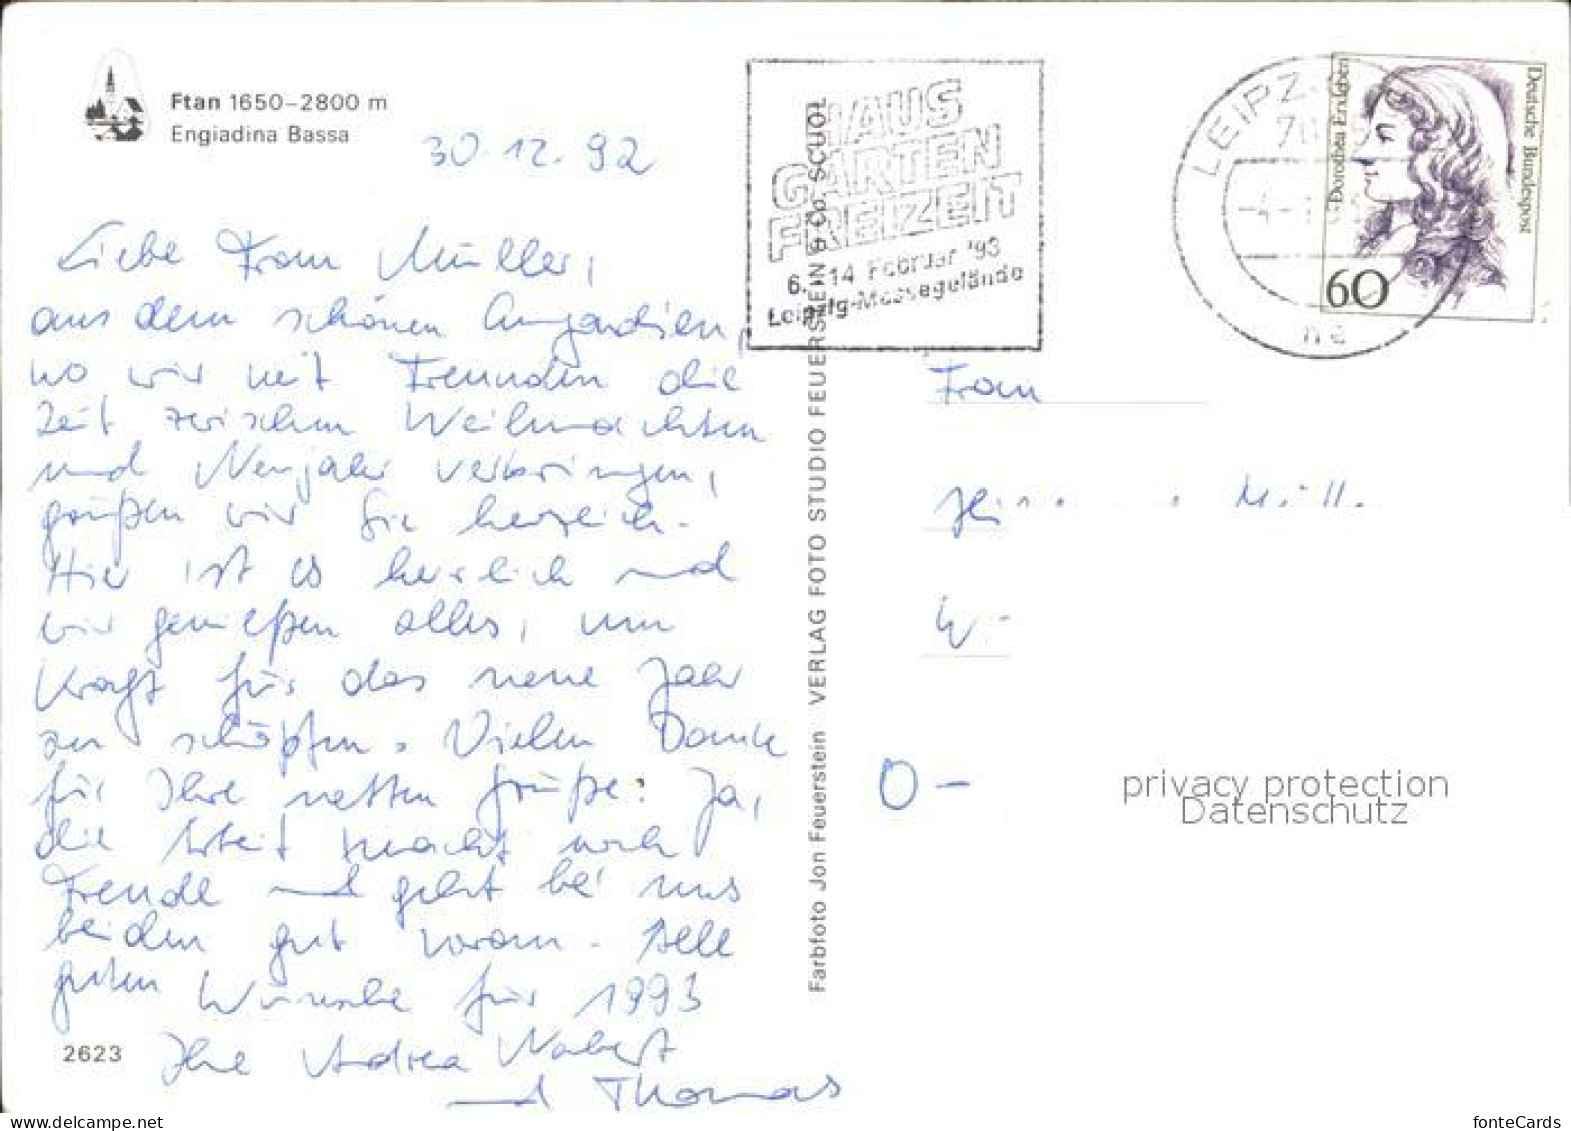 Ftan 1650–2800 m
Engiadina Bassa
30.12.92
Liebe Frau Müller,
aus dem schönen Engardien,
wo wir mit Freunden die
Zeit zwischen Weihnachten
und Neujahr verbringen,
grüßen wir Sie herzlich.
Hier ist es herrlich und
wir genießen alles, um
Kraft für das neue Jahr
zu schöpfen. Vielen Dank
für Ihre netten Grüße. Ja,
die Arbeit macht noch
Freude und geht bei uns
beiden gut voran. Alle
guten Wünsche für 1993
Ihre Andrea Nabert
und Thomas
2623
Farbfoto Jon Feuerstein VERLAG FOTO STUDIO FEUERSTEIN & Co. SCUOL
HAUS
GARTEN
FREIZEIT
6.-14 Februar '93
Leipzig-Messegelände
LEIPZ
Dorothea Erxleben
Deutsche Bundespost
60
Frau
W-
O-
privacy protection
Datenschutz
fonteCards